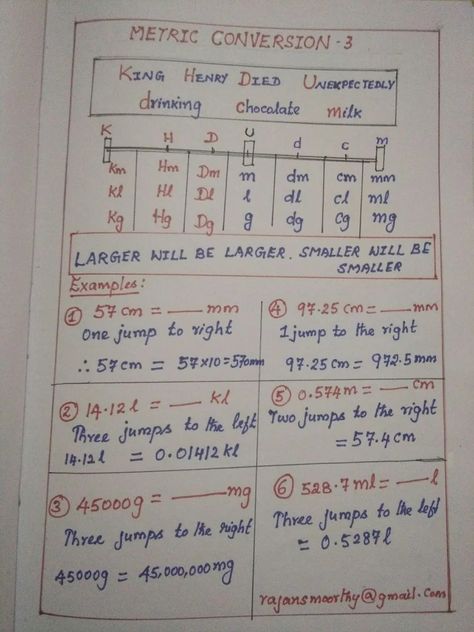 METRIC CONVERSION - 3
KING HENRY DIED UNEXPECTEDLY
drinking chocolate milk
K H D U d c m
Km Hm Dm m dm cm mm
Kl Hl Dl l dl cl ml
Kg Hg Dg g dg cg mg
LARGER WILL BE LARGER. SMALLER WILL BE
SMALLER
Examples:
① 57 cm = ___ mm
One jump to right
∴ 57 cm = 57×10 = 570mm
② 14.12 l = ___ kl
Three jumps to the left
14.12 l = 0.01412 kl
③ 45000g = ___ mg
Three jumps to the right
45000g = 45,000,000mg
④ 97.25 cm = ___ mm
1 jump to the right
97.25 cm = 972.5 mm
⑤ 0.574m = ___ cm
Two jumps to the right
= 57.4 cm
⑥ 528.7 ml = ___ l
Three jumps to the left
= 0.5287 l
rajansmoorthy@gmail.com